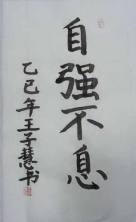 自强不息
乙巳年王子慧书